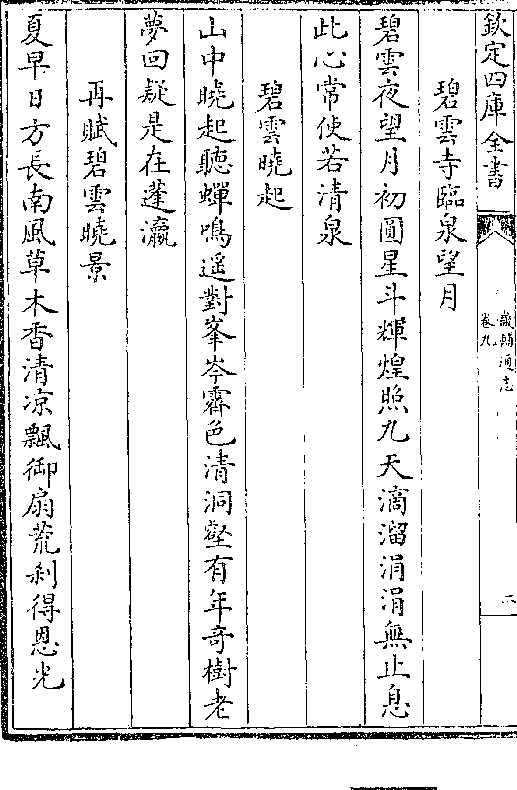 欽定四庫全書
畿輔通志
卷九
二
碧雲寺臨泉望月
碧雲夜望月初圓星斗輝煌照九天滴溜涓涓無止息
此心常使若清泉
碧雲曉起
山中曉起聽蟬鳴遥對峯岑霽色清洞壑有年奇樹老
夢回疑是在蓬瀛
再賦碧雲曉景
夏早日方長南風草木香清凉飄御扇荒刹得恩光